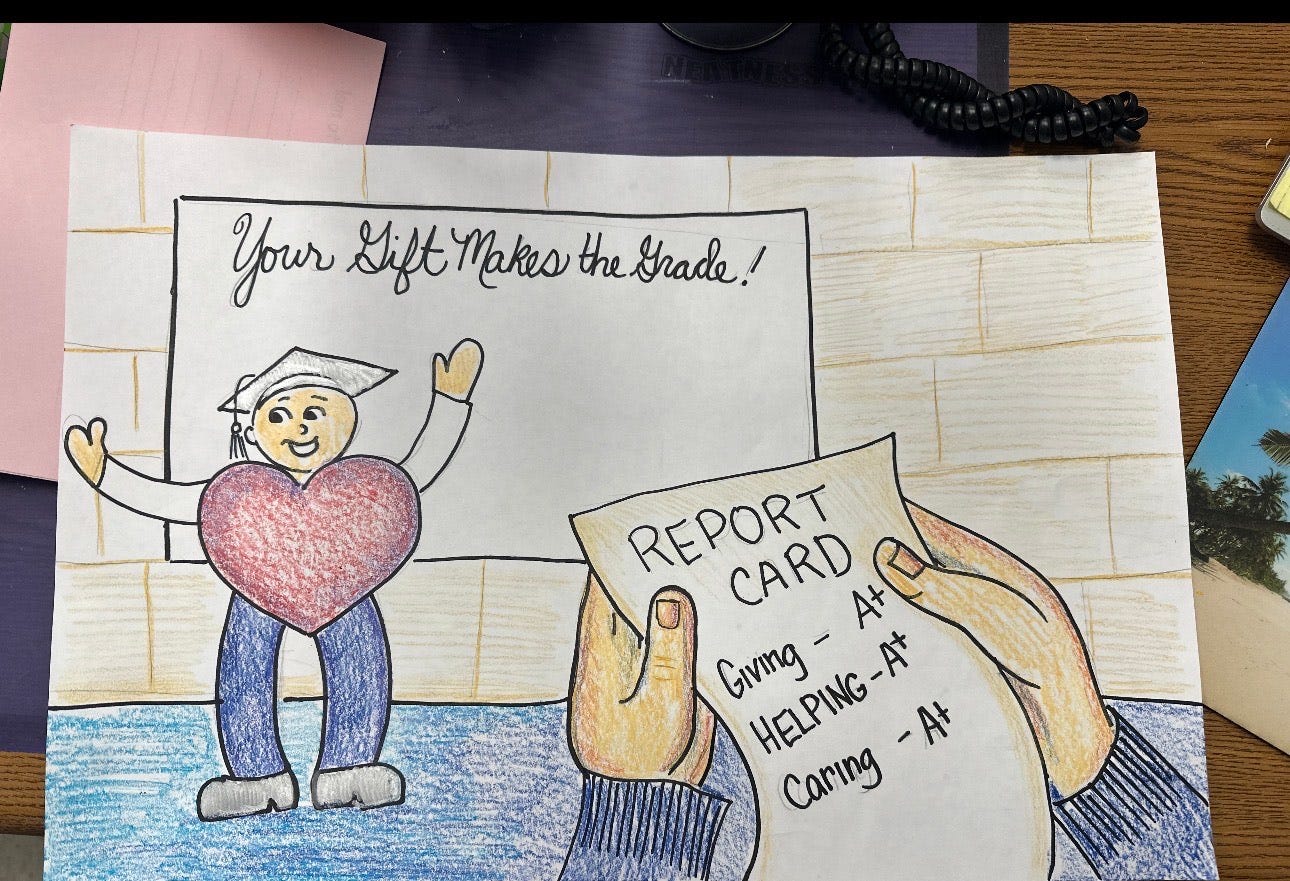 NEATNESS
Your Gift Makes the Grade!
REPORT
CARD
Giving - A+
HELPING - A+
Caring - A+